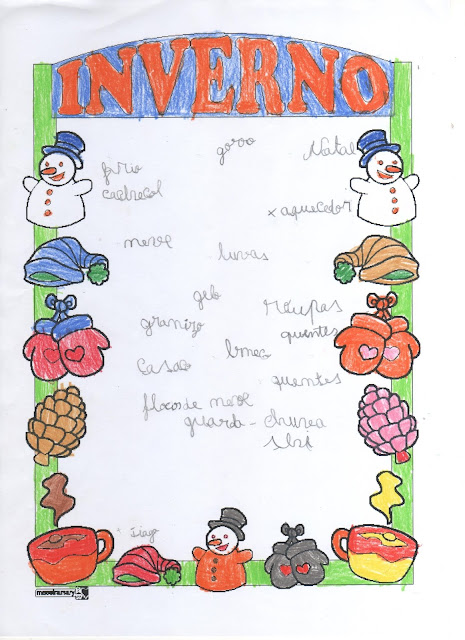 INVERNO
gorro
Natal
frio
cachecol
x aquecedor
neve luvas
gelo
roupas
granizo quentes
casaco
quentes
flocos de neve
guarda - chuva
Tiago